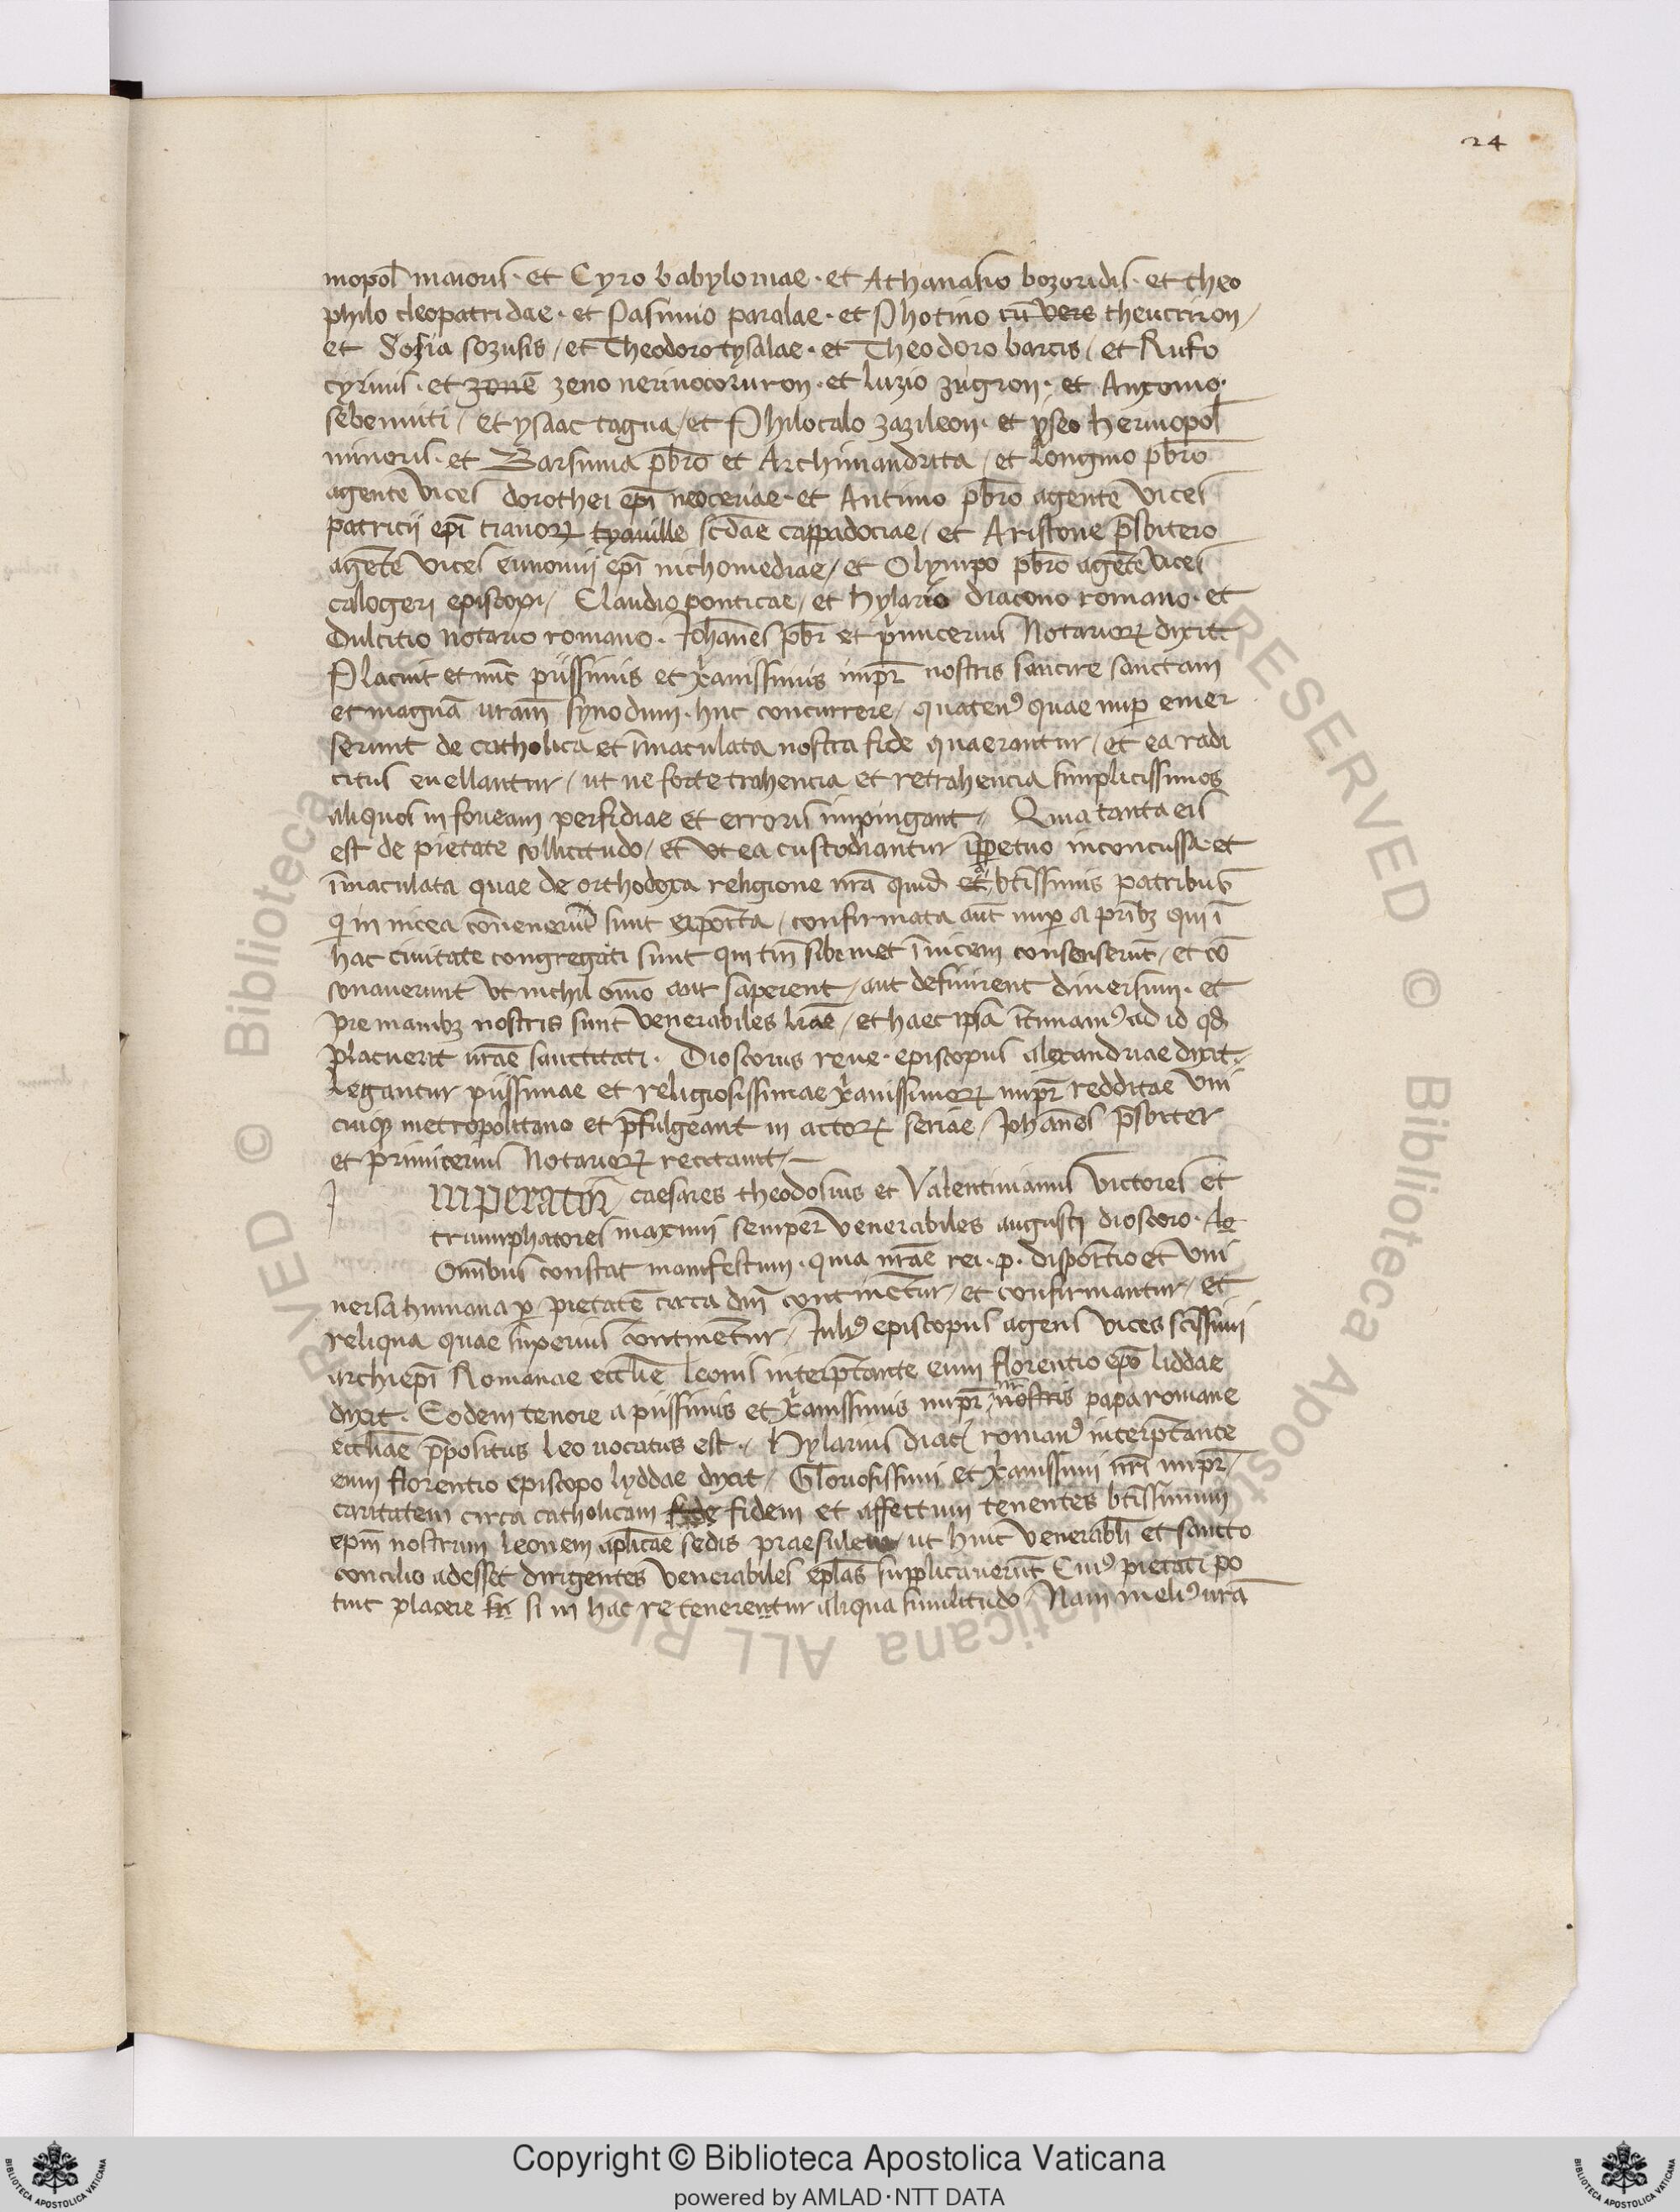 24
mopol̄ maioris · et Cyro babyloniae · et Athanasio bozoridis · et theo
philo cleopatridae · et Pasimio paralae · et Photino theuciron /
et Sosia sozusis / et Theodoro tysalae · et Theodoro barcis / et Rufo
cyrinis · et zonē zeno nerinocoruron · et luzio zugron · et Auxonio ·
sebenniti / et ysaac tagua / et Philocalo zazileon · et yseo hermopol̄
minoris · et Barsuma pbr̄o et Archimandrita / et longino pbr̄o
agente vices dorothei ep̄i neoceriae · et Antimo pbr̄o agente vices
patricii ep̄i tianoꝝ tyanille scd̄ae cappadociae / et Aristone p̄sbitero
agēte vices eunomii ep̄i nichomediae / et Olympo pbr̄o agēte vices
calogeri episcopi / Claudio ponticae / et hylario diacono romano · et
Dulcitio notario romano · Joh̄anes pbr̄ et primicerius Notarioꝝ dixit
Placuit et nūc piissimis et xp̄anissimis impr̄ nostris sancire sanctam
et magnā ur̄am synodum · huc concurrere / quatenꝰ quae nuꝑ emer
serunt de catholica et īmaculata nostra fide quaerantur / et ea radi
citus euellantur / ut ne forte trahencia et retrahencia simplicissimos
aliquos in foueam perfidiae et erroris impingant / Quia tanta eis
est de pietate sollicitudo / et ut ea custodiantur īꝑpetuo inconcussa · et
īmaculata quae de orthodoxa religione nr̄a quid et a bt̄issimis patribus
q in nicea cōuenerūt sunt exposita / confirmata aūt nuꝑ a pr̄ibꝫ qui ī
hac ciuitate congregati sunt qui tn̄ sibimet īuicem consenserūt / et cō
sonauerunt ut nichil om̄o aut saperent / aut definirent diuersum · et
pre manibꝫ nostris sunt venerabiles lr̄ae / et haec ip̄sa īt̄imamꝰ ad id qd̄
placuerit ur̄ae sanctitati · Dioscorus reue · episcopus alexandriae dixit ·
Legantur piissimae et religiosissimae xp̄anissimoꝝ impr̄ redditae vni
cuiqꝫ metropolitano et p̄fulgeant in actoꝝ seriae / Johan̄es p̄sbiter
et primicerius Notarioꝝ recitauit /
Imperator̄ caesares theodosius et Valentinianus victores et
triumphatores maximi semper venerabiles augusti dioscoro ·
Omnibus constat manifestum · quia nr̄ae rei · p · disposit̄io et vni
uersa humana ꝑ pietatē circa dm̄ continētur / et confirmantur / et
reliqua quae superius continētur / Juliꝰ episcopus agens vices sc̄issimi
archiep̄i Romanae eccl̄ie Leonis interp̄tante eum florentio ep̄o liddae
dixit · Eodem tenore a piissimis et xp̄anissimis impr̄ nostris papa romane
eccl̄iae p̄positus Leo uocatus est · Hylarius diac̄ romanꝰ interp̄tante
eum florentio episcopo lyddae dixit / Gloriosissimi et xp̄anissimi nr̄i impr̄ /
caritatem circa catholicam fide fidem et affectum tenentes bt̄issimum
ep̄m nostrum leonem apl̄icae sedis praesulem / ut huic venerabl̄i et sancto
concilio adesset dirigentes venerabiles epl̄as supplicauerūt Cuiꝰ pietati po
tuit placere si in hac re tenerentur aliqua similitudo / Nam meliꝰ ur̄a
© Biblioteca Apostolica Vaticana ALL RIGHTS RESERVED
Copyright © Biblioteca Apostolica Vaticana
powered by AMLAD·NTT DATA